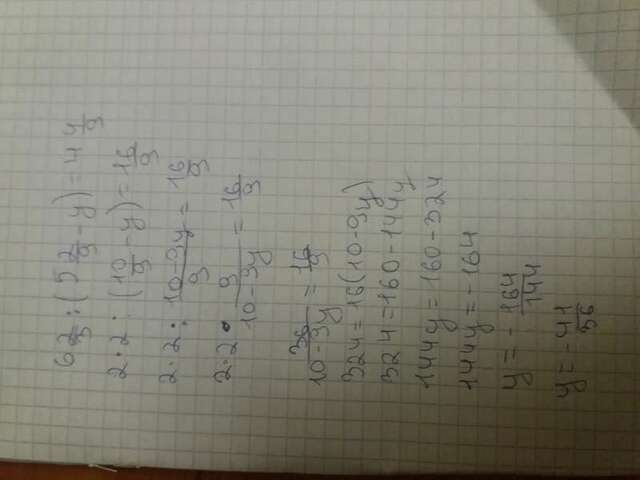 6 2/3 : (5 2/9 - y) = 4 4/9
2·2 : (10/9 - y) = 16/9
2·2 : 10-9y/9 = 16/9
2·2 · 9/10-9y = 16/9
36/10-9y = 16/9
324=16(10-9y)
324=160-144y
144y=160-324
144y=-164
y = - 164/144
y = - 41/36